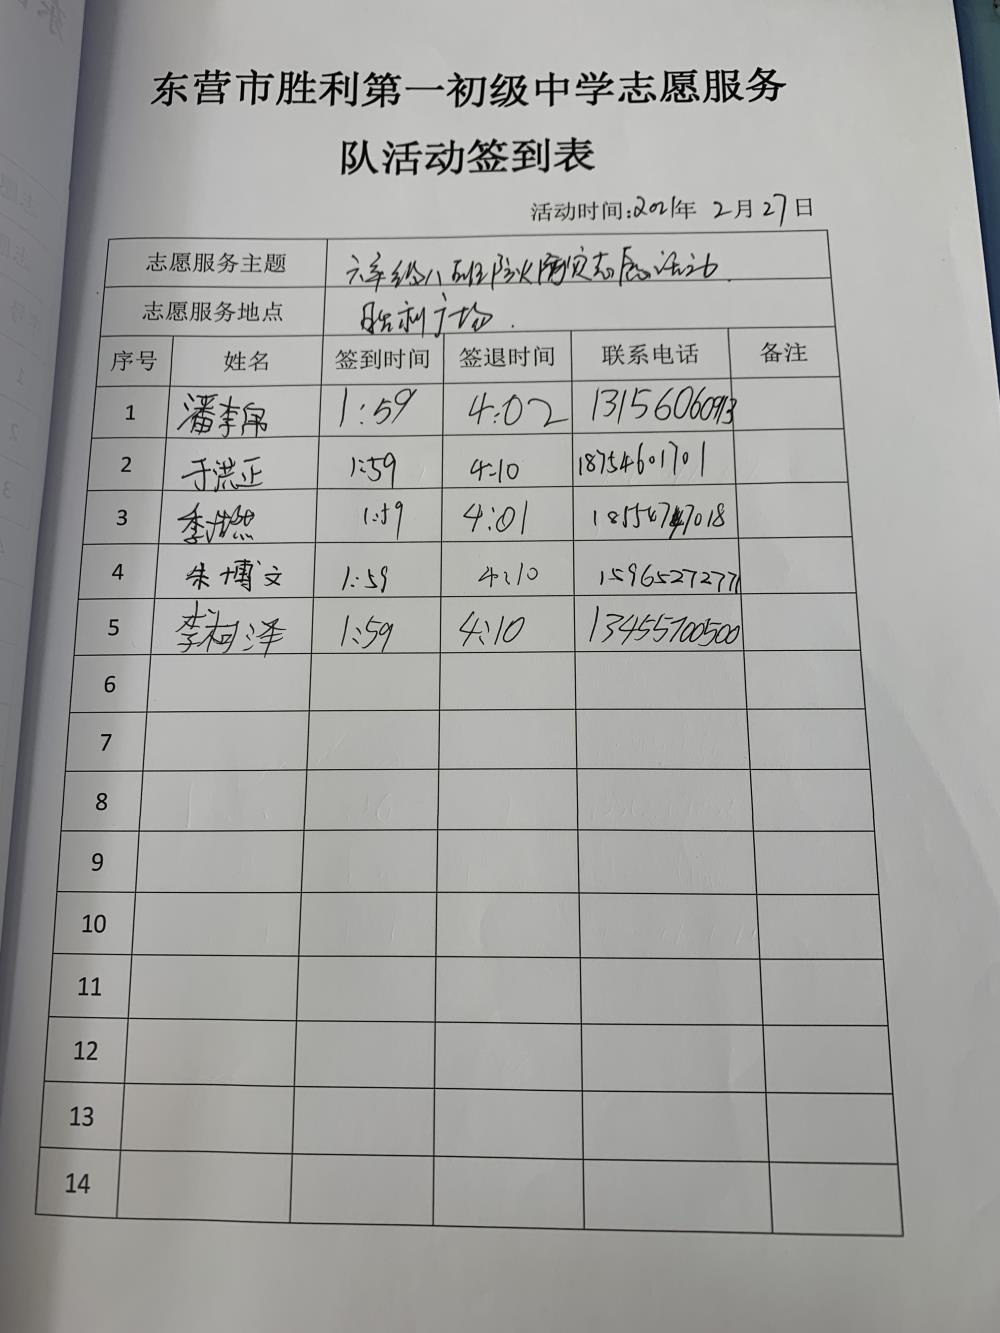 东营市胜利第一初级中学志愿服务
队活动签到表
活动时间:2021年 2月27日
志愿服务主题 六年级八班防火防灾志愿活动
志愿服务地点 胜利广场.
序号 姓名 签到时间 签退时间 联系电话 备注
1 潘李 1:59 4:02 13156060913
2 于洪正 1:59 4:10 18754601701
3 季浩然 1:59 4:01
4 朱博文 1:59 4:10 15965272771
5 李柯泽 1:59 4:10 13455700500
6
7
8
9
10
11
12
13
14